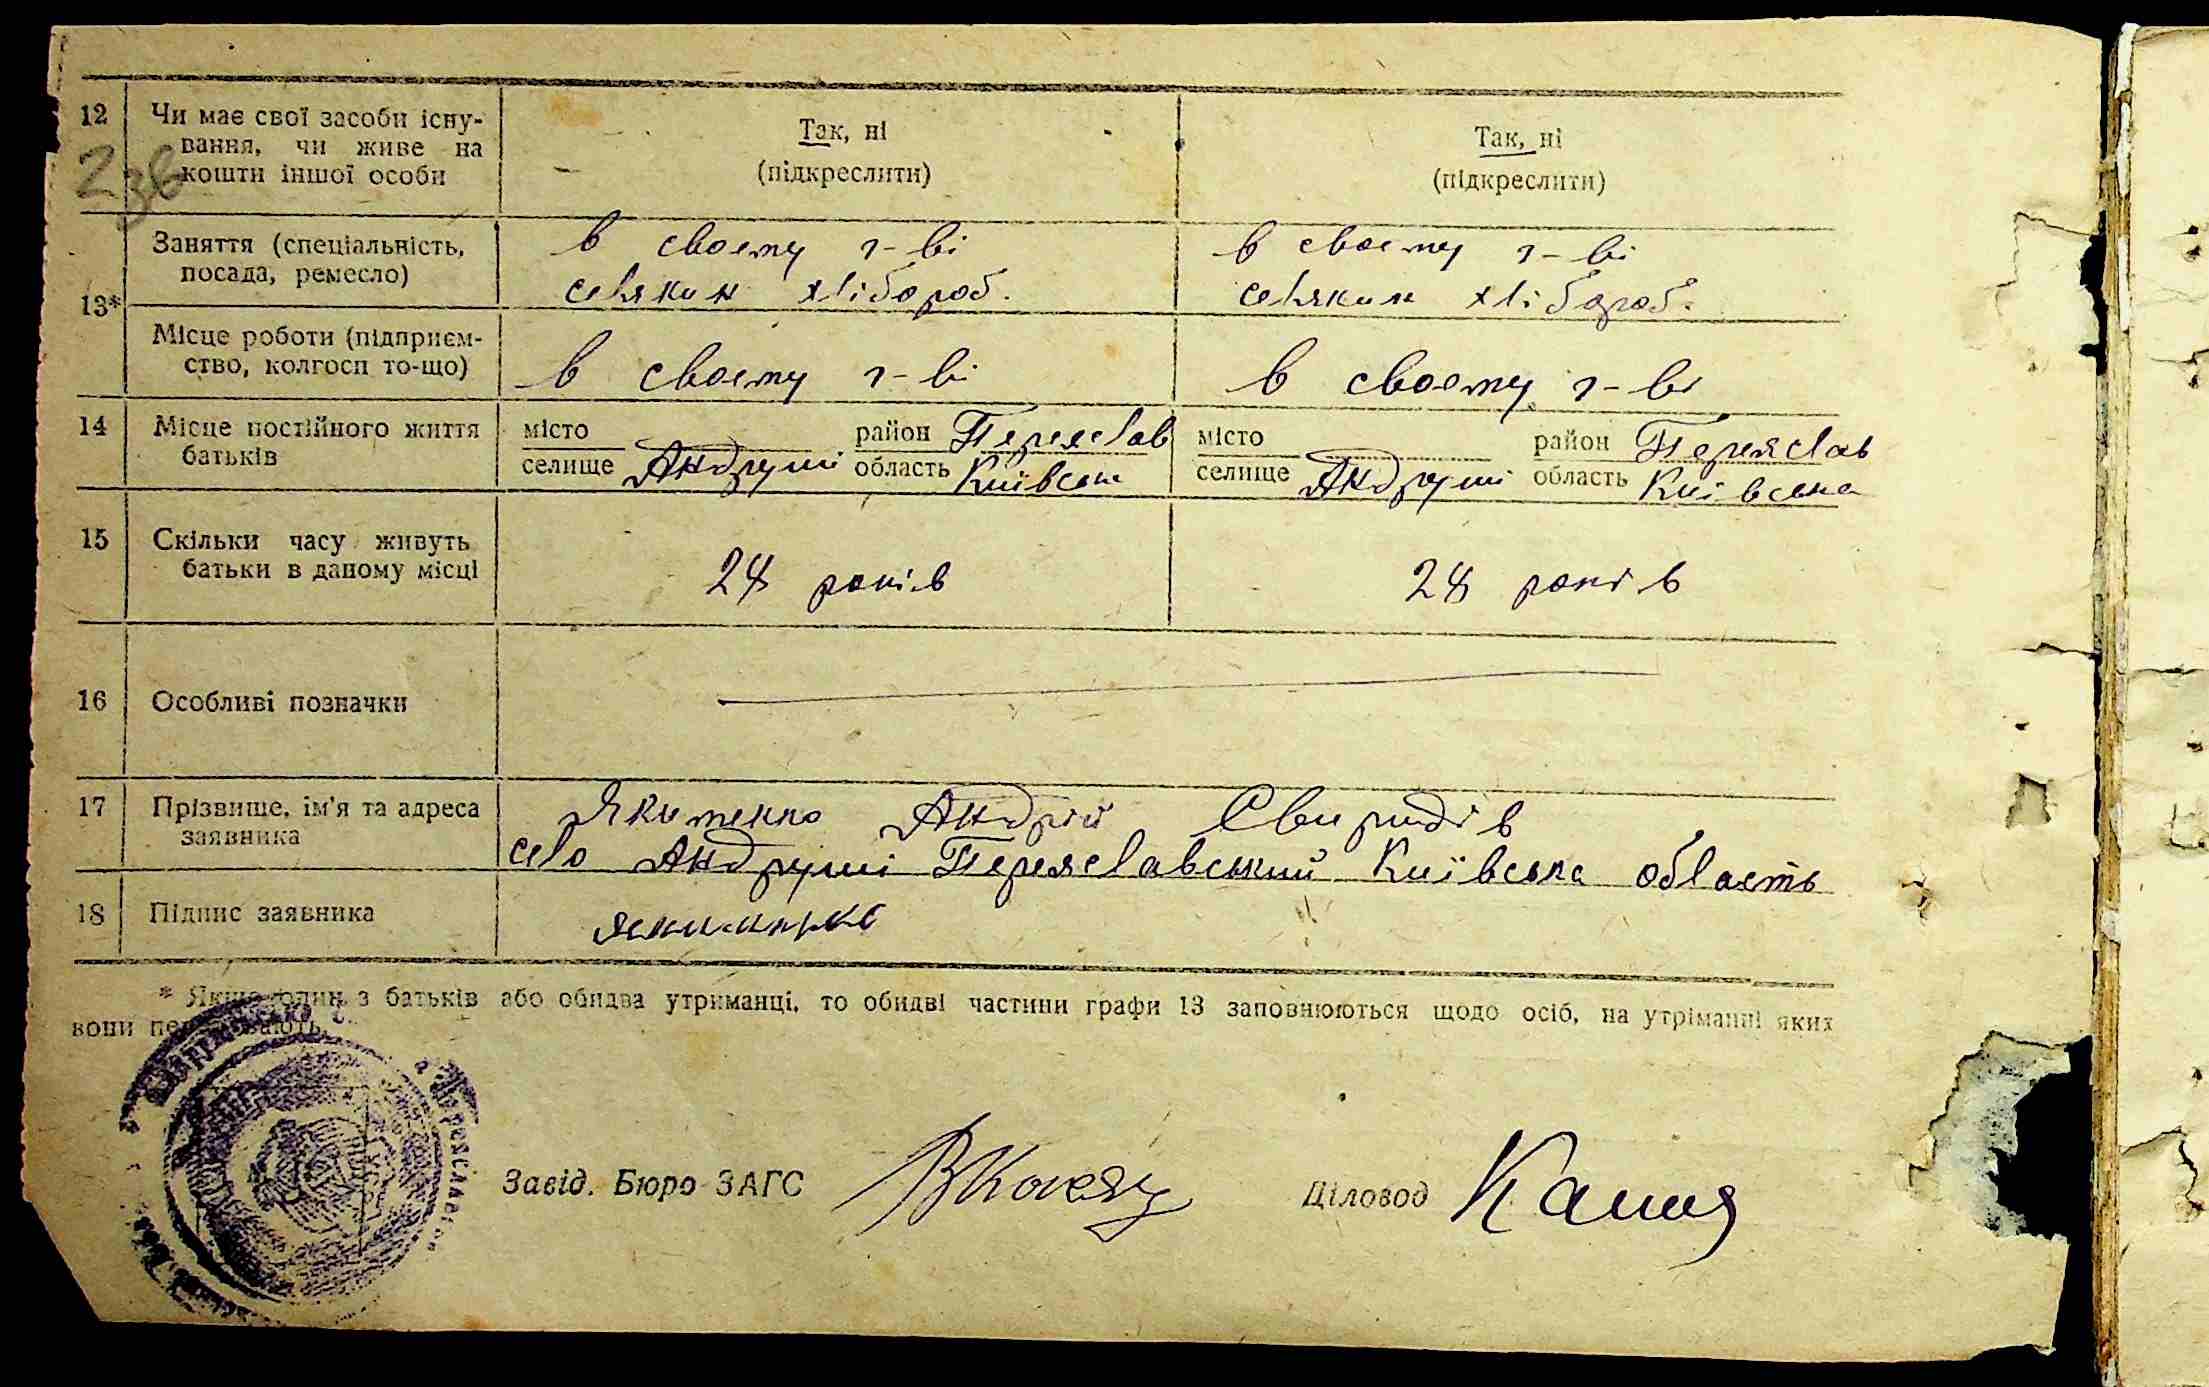 12 Чи має свої засоби існу-
вання, чи живе на
кошти іншої особи
Так, ні
(підкреслити)
Так, ні
(підкреслити)
236
13*
Заняття (спеціальність,
посада, ремесло)
в своєму г-ві
селянин хлібороб.
в своєму г-ві
селянин хлібороб.
Місце роботи (підприєм-
ство, колгосп то-що)
в своєму г-ві
в своєму г-ві
14 Місце постійного життя
батьків
місто район Переяслав
селище Андруші область Київська
місто район Переяслав
селище Андруші область Київська
15 Скільки часу живуть
батьки в даному місці
28 років
28 років
16 Особливі позначки
17 Прізвище, ім'я та адреса
заявника
Якименко Андрій Свиридів
село Андруші Переяславський Київська область
18 Підпис заявника
Якименко
* Якщо один з батьків або обидва утриманці, то обидві частини графи 13 заповнюються щодо осіб, на утріманні яких
вони перебувають.
Завід. Бюро ЗАГС
Діловод